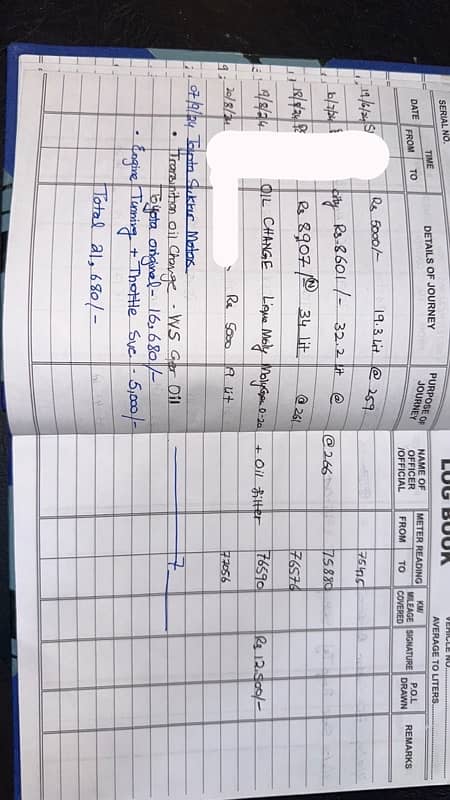 LOG BOOK
SERIAL NO.
VEHICLE NO.
AVERAGE TO LITERS
DATE TIME FROM TO DETAILS OF JOURNEY PURPOSE OF JOURNEY NAME OF OFFICER /OFFICIAL METER READING FROM TO KM/ MILEAGE COVERED SIGNATURE P.O.L DRAWN REMARKS
19/6/24 Rs 5000/- 19.3 Lit @ 259 75415
10/7/24 city Rs. 8601/- 32.2 Lit @ @ 266 75880
18/8/24 Rs 8,907/ 34 Lit @ 261 76576
19/8/24 OIL CHANGE Liqui Moly 0-20 + Oil filter 76590 Rs 12,500/-
20/8/24 Rs 5000 19 Lit 77056
07/9/24 Toyota Sukkur Motors
• Transmition Oil Change - WS Gear Oil
Toyota original - 16,680/-
• Engine Tunning + Throttle Sve - 5,000/-
Total 21,680/-